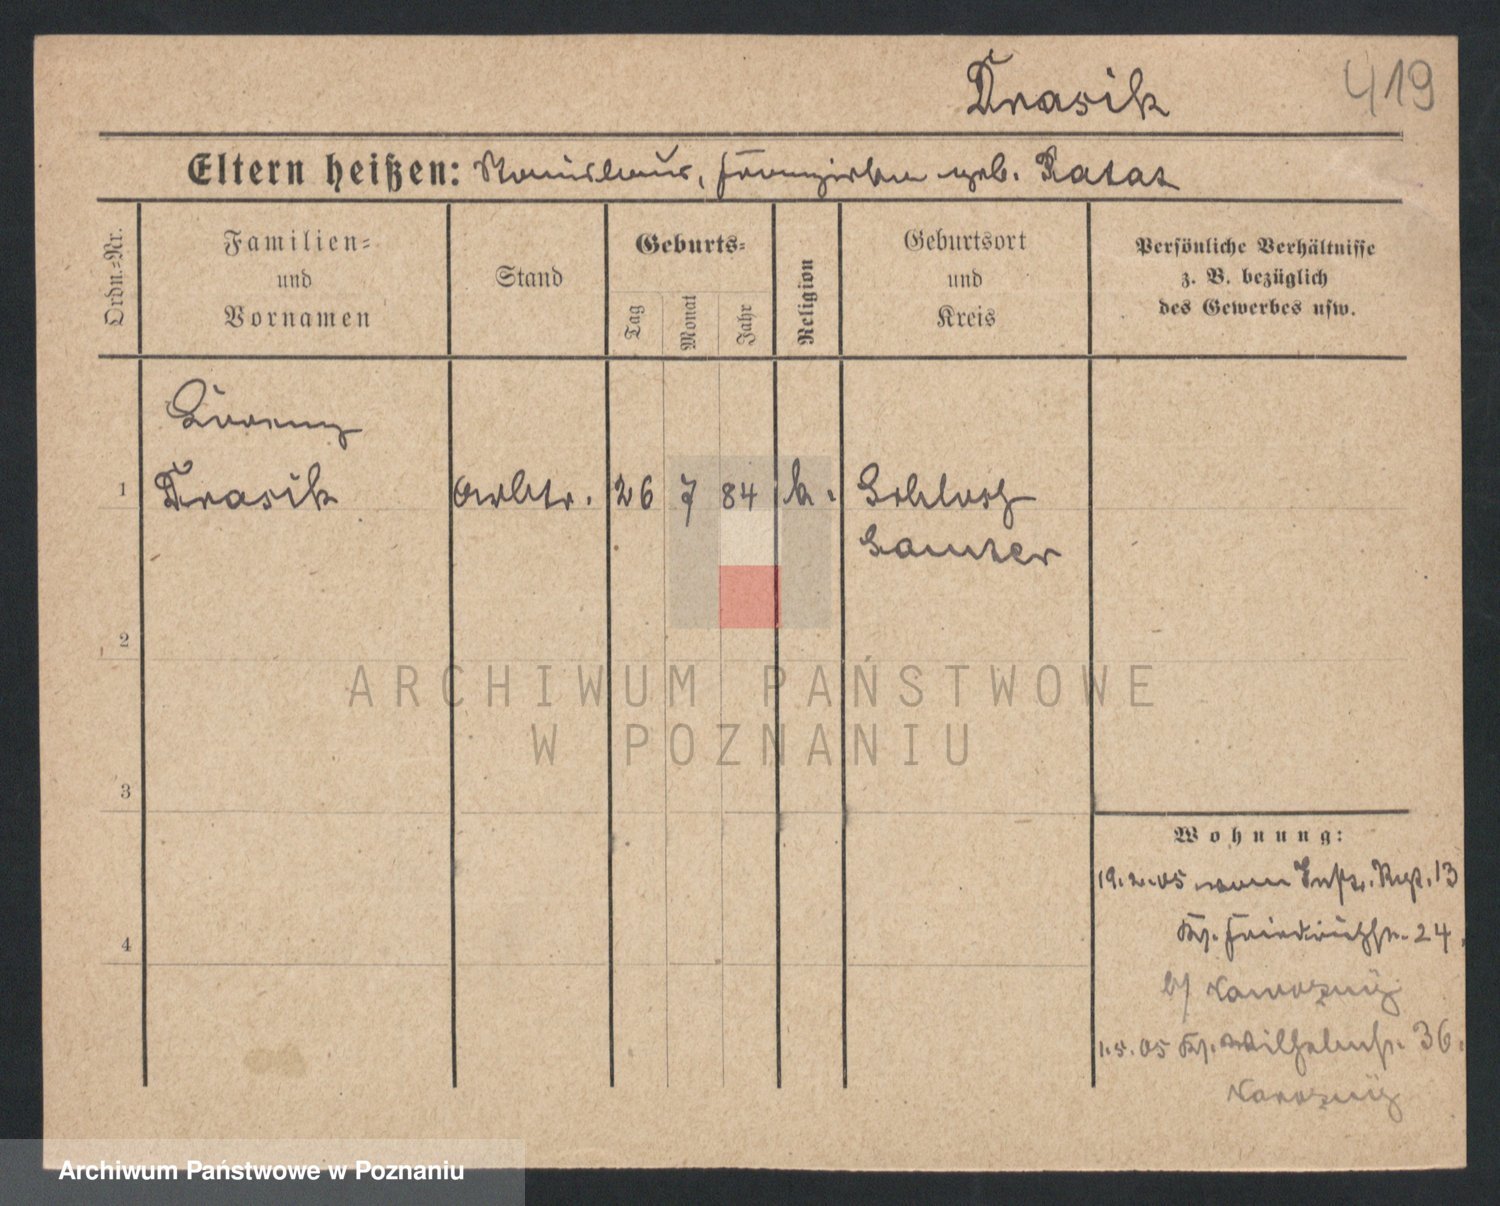 Drasik 419
Eltern heißen: Stanislaus, Franziska geb. Ratas
Ordn.-Nr.
Familien-
und
Vornamen
Stand
Geburts-
Tag
Monat
Jahr
Religion
Geburtsort
und
Kreis
Persönliche Verhältnisse
z. B. bezüglich
des Gewerbes usw.
Lorenz
1 Drasik Arbtr. 26 7 84 k. Schloss
Samter
2
3
4
Wohnung:
19.2.05 vom 13
Kl. Friedrichstr. 24.
b/
1.5.05 Kl. Wilhelmstr. 36.
ARCHIWUM PAŃSTWOWE
W POZNANIU
Archiwum Państwowe w Poznaniu